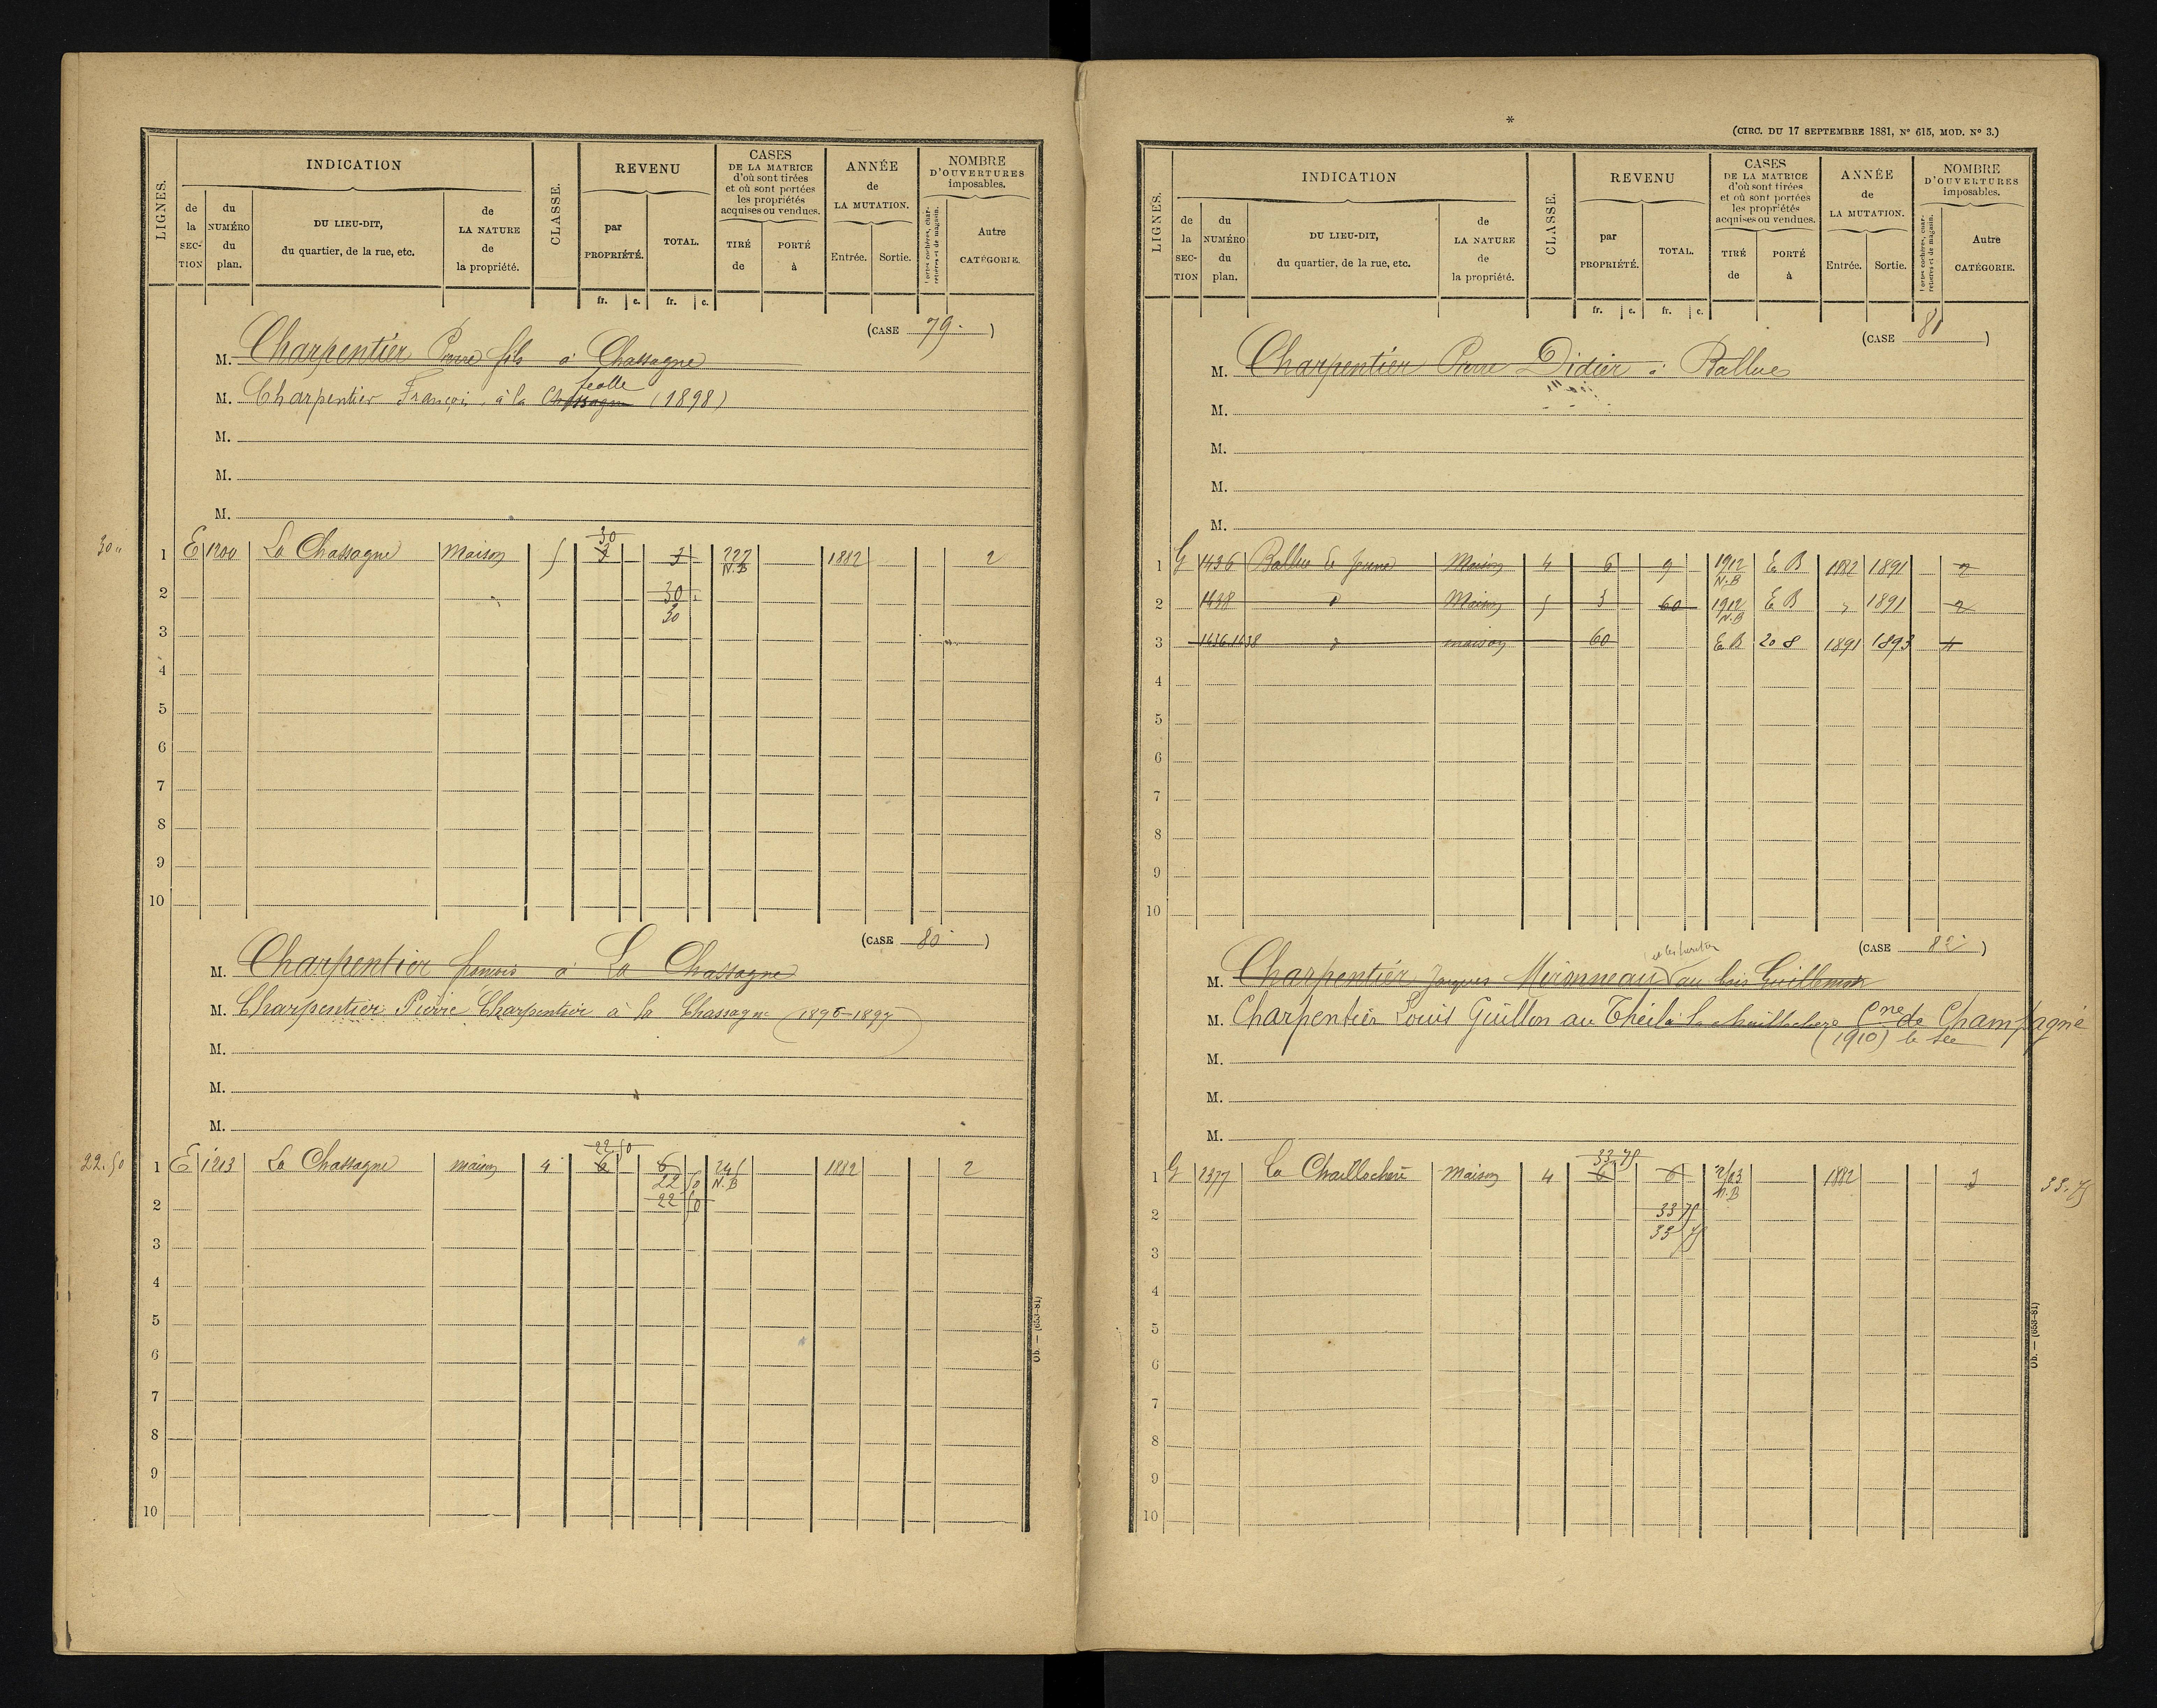 LIGNES. INDICATION CLASSE. REVENU CASES DE LA MATRICE d'où sont tirées et où sont portées les propriétés acquises ou vendues. ANNÉE de LA MUTATION. NOMBRE D'OUVERTURES imposables.
de la SECTION du NUMÉRO du plan. DU LIEU-DIT, du quartier, de la rue, etc. de LA NATURE de la propriété. par PROPRIÉTÉ. TOTAL. TIRÉ de PORTÉ à Entrée. Sortie. Portes cochères, charretières et de magasin. Autre CATÉGORIE.
fr. c. fr. c.
(CASE 79.)
M. Charpentier Pierre fils à Chassagne
M. Charpentier François, à la Chassagne (1898)
M.
M.
M.
30
30 1 E 1200 La Chassagne Maison 5 3 3 222 N.B 1882 2
2 30
3 30
4
5
6
7
8
9
10
(CASE 80)
M. Charpentier françois à La Chassagne
M. Charpentier Pierre Charpentier à la Chassagne (1896-1897)
M.
M.
M.
22 50
22.50 1 E 1213 La Chassagne maison 4 6 6 N.B 1882 2
22 50
2 22 50
3
4
5
6
7
8
9
10
Ob. — (653-81)
*
(CIRC. DU 17 SEPTEMBRE 1881, Nº 615, MOD. Nº 3.)
LIGNES. INDICATION CLASSE. REVENU CASES DE LA MATRICE d'où sont tirées et où sont portées les propriétés acquises ou vendues. ANNÉE de LA MUTATION. NOMBRE D'OUVERTURES imposables.
de la SECTION du NUMÉRO du plan. DU LIEU-DIT, du quartier, de la rue, etc. de LA NATURE de la propriété. par PROPRIÉTÉ. TOTAL. TIRÉ de PORTÉ à Entrée. Sortie. Portes cochères, charretières et de magasin. Autre CATÉGORIE.
fr. c. fr. c.
(CASE 81)
M. Charpentier Pierre Didier à Ballue
M.
M.
M.
M.
1 G 1436 Maison 4 6 9 1912 N.B E B 1882 1891 2
2 1438 d Maison 5 3 60 1912 N.B E B 1891 2
3 1436.1438 d maison 60 E B 208 1891 1893 4
4
5
6
7
8
9
10
(CASE 82)
M. Charpentier Jacques Mironneau au bois Guillemot
M. Charpentier Louis Guillon au Theil à la Cne de Champagné
(1910) le Sec
M.
M.
M.
33.75
1 G 2377 La Maison 4 6 6 N.B 1882 3 33.75
2 33 75
33 75
3
4
5
6
7
8
9
10
Ob. — (653-81)